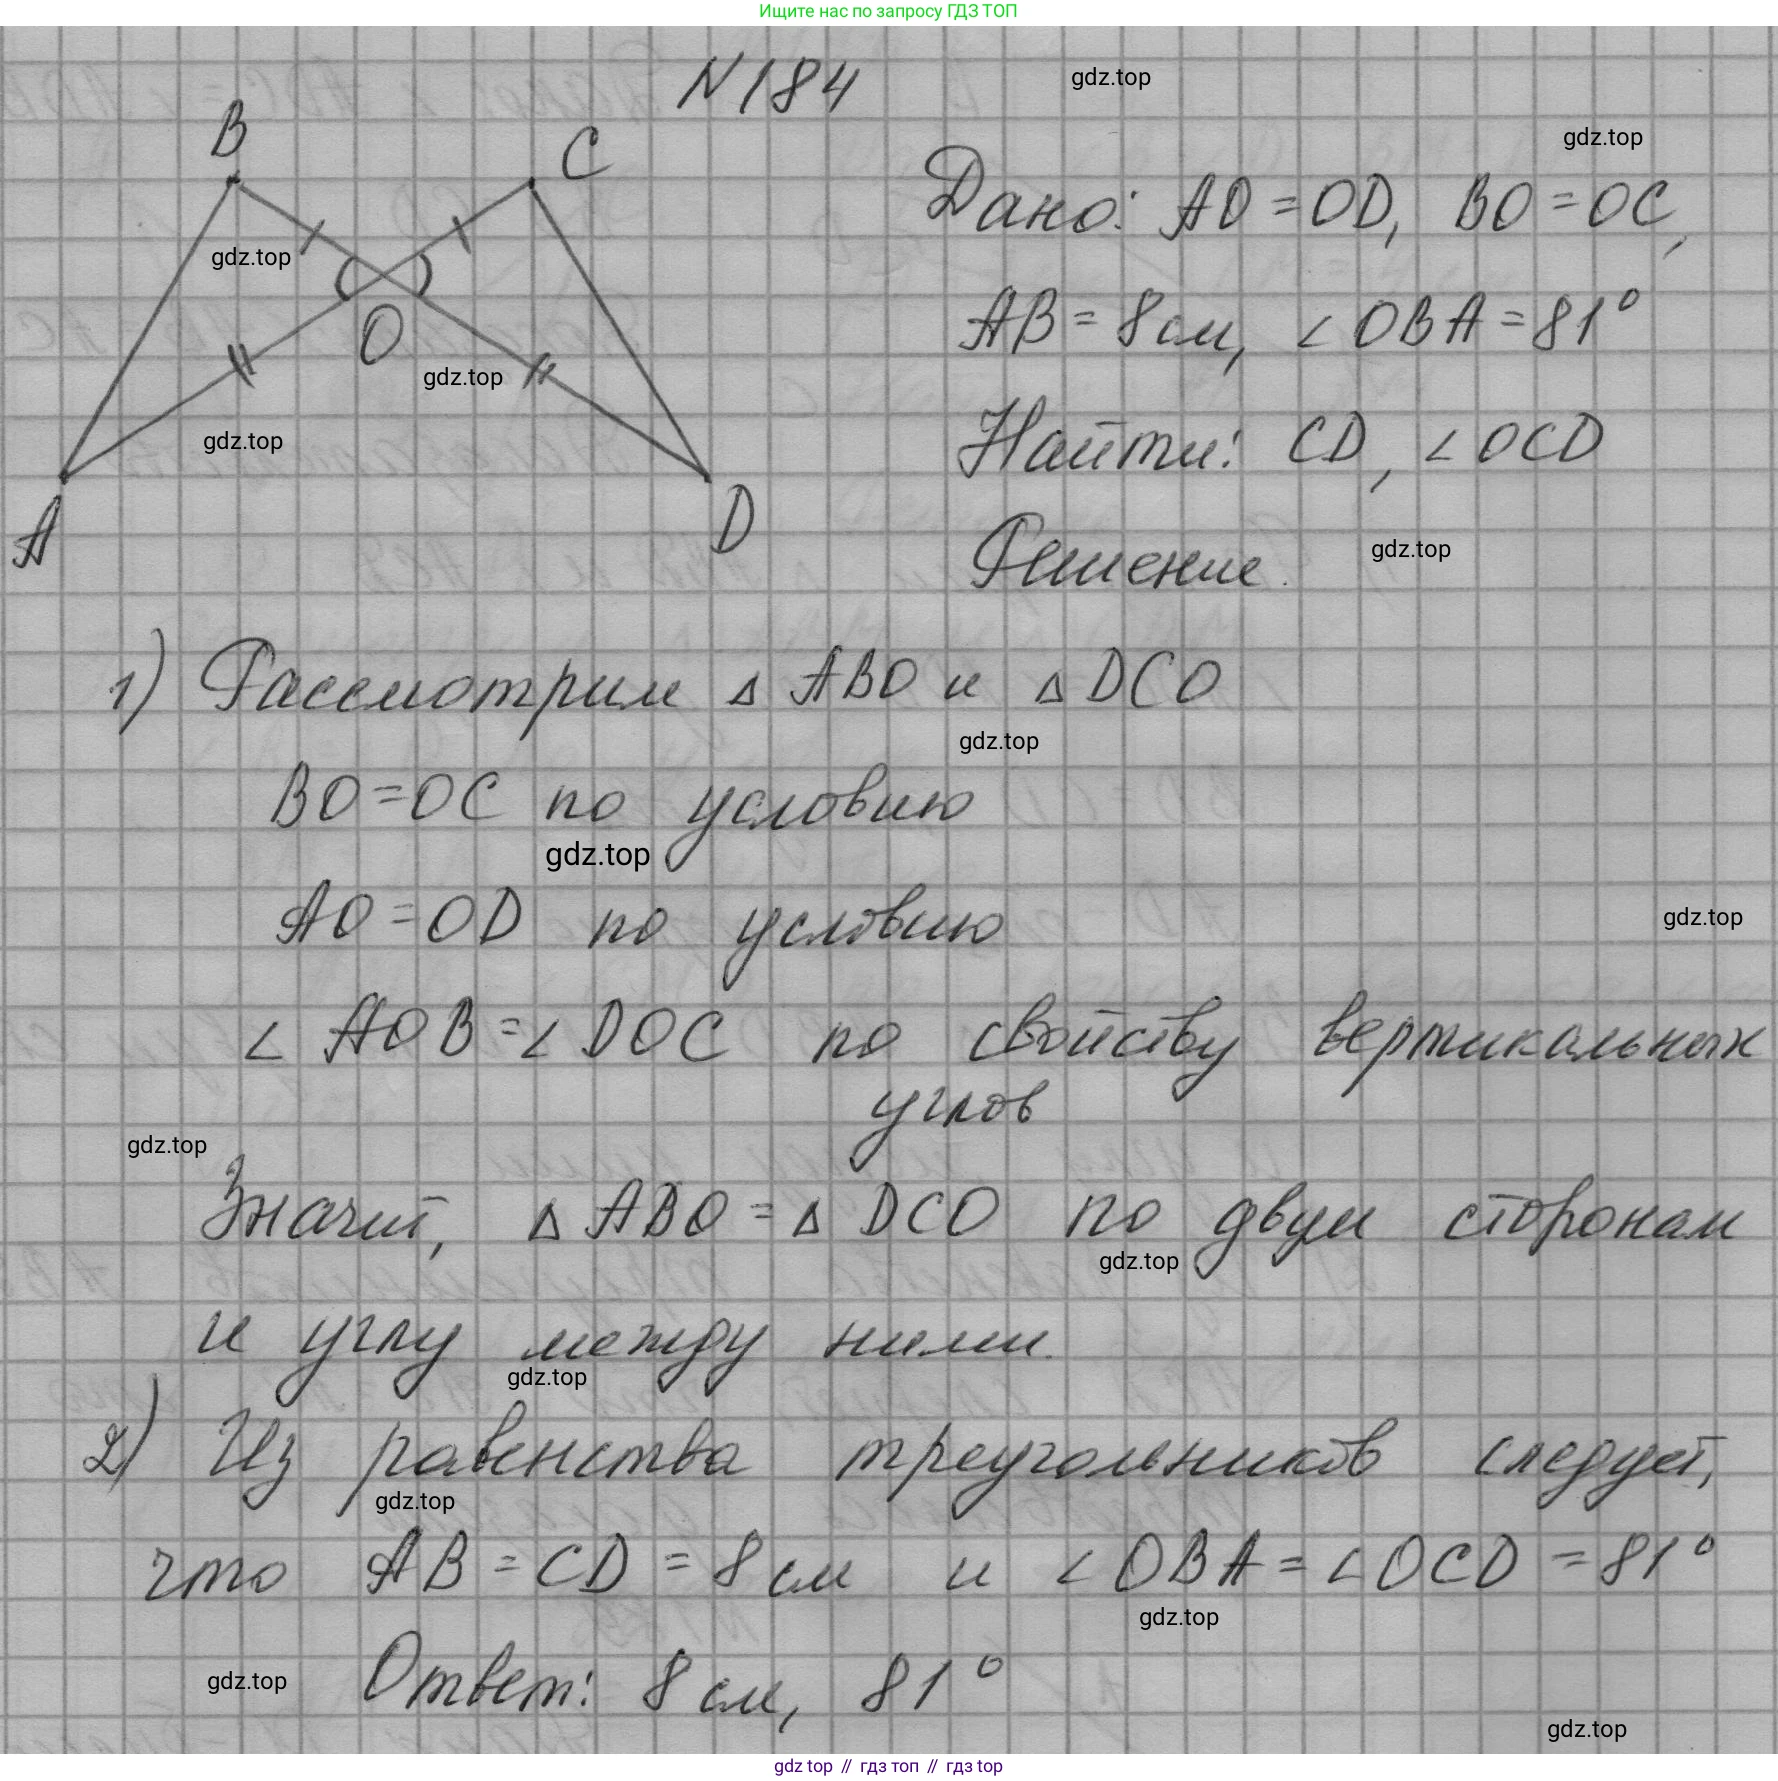 Ищите нас по запросу ГДЗ ТОП
N184
gdz.top
gdz.top
B
C
Дано: AO = OD, BO = OC,
gdz.top
AB = 8 см, ∠OBA = 81°
O
gdz.top
gdz.top
Найти: CD, ∠OCD
A
D
Решение.
gdz.top
1) Рассмотрим △ ABO и △ DCO
gdz.top
BO = OC по условию
gdz.top
AO = OD по условию
gdz.top
∠ AOB = ∠ DOC по свойству вертикальных
углов
gdz.top
Значит, △ ABO = △ DCO по двум сторонам
gdz.top
и углу между ними.
gdz.top
2) Из равенства треугольников следует,
gdz.top
что AB = CD = 8 см и ∠OBA = ∠OCD = 81°
gdz.top
Ответ: 8 см, 81°
gdz.top
gdz.top
gdz top // гдз топ // гдз top